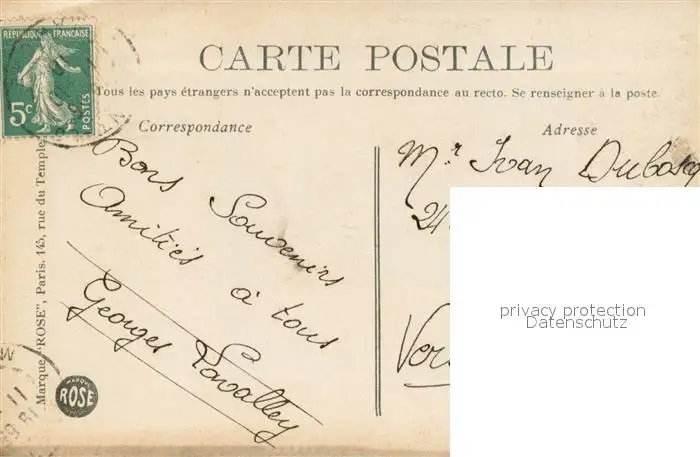 RÉPUBLIQUE FRANÇAISE
5c
POSTES
CARTE POSTALE
Tous les pays étrangers n'acceptent pas la correspondance au recto. Se renseigner à la poste.
Correspondance
Bons Souvenirs
Amitiés à tous
Georges Lavalley
Marque "ROSE", Paris. 145, rue du Temple
MARQUE
ROSE
Adresse
Mr Ivan Dubosq
24
Ver
privacy protection
Datenschutz